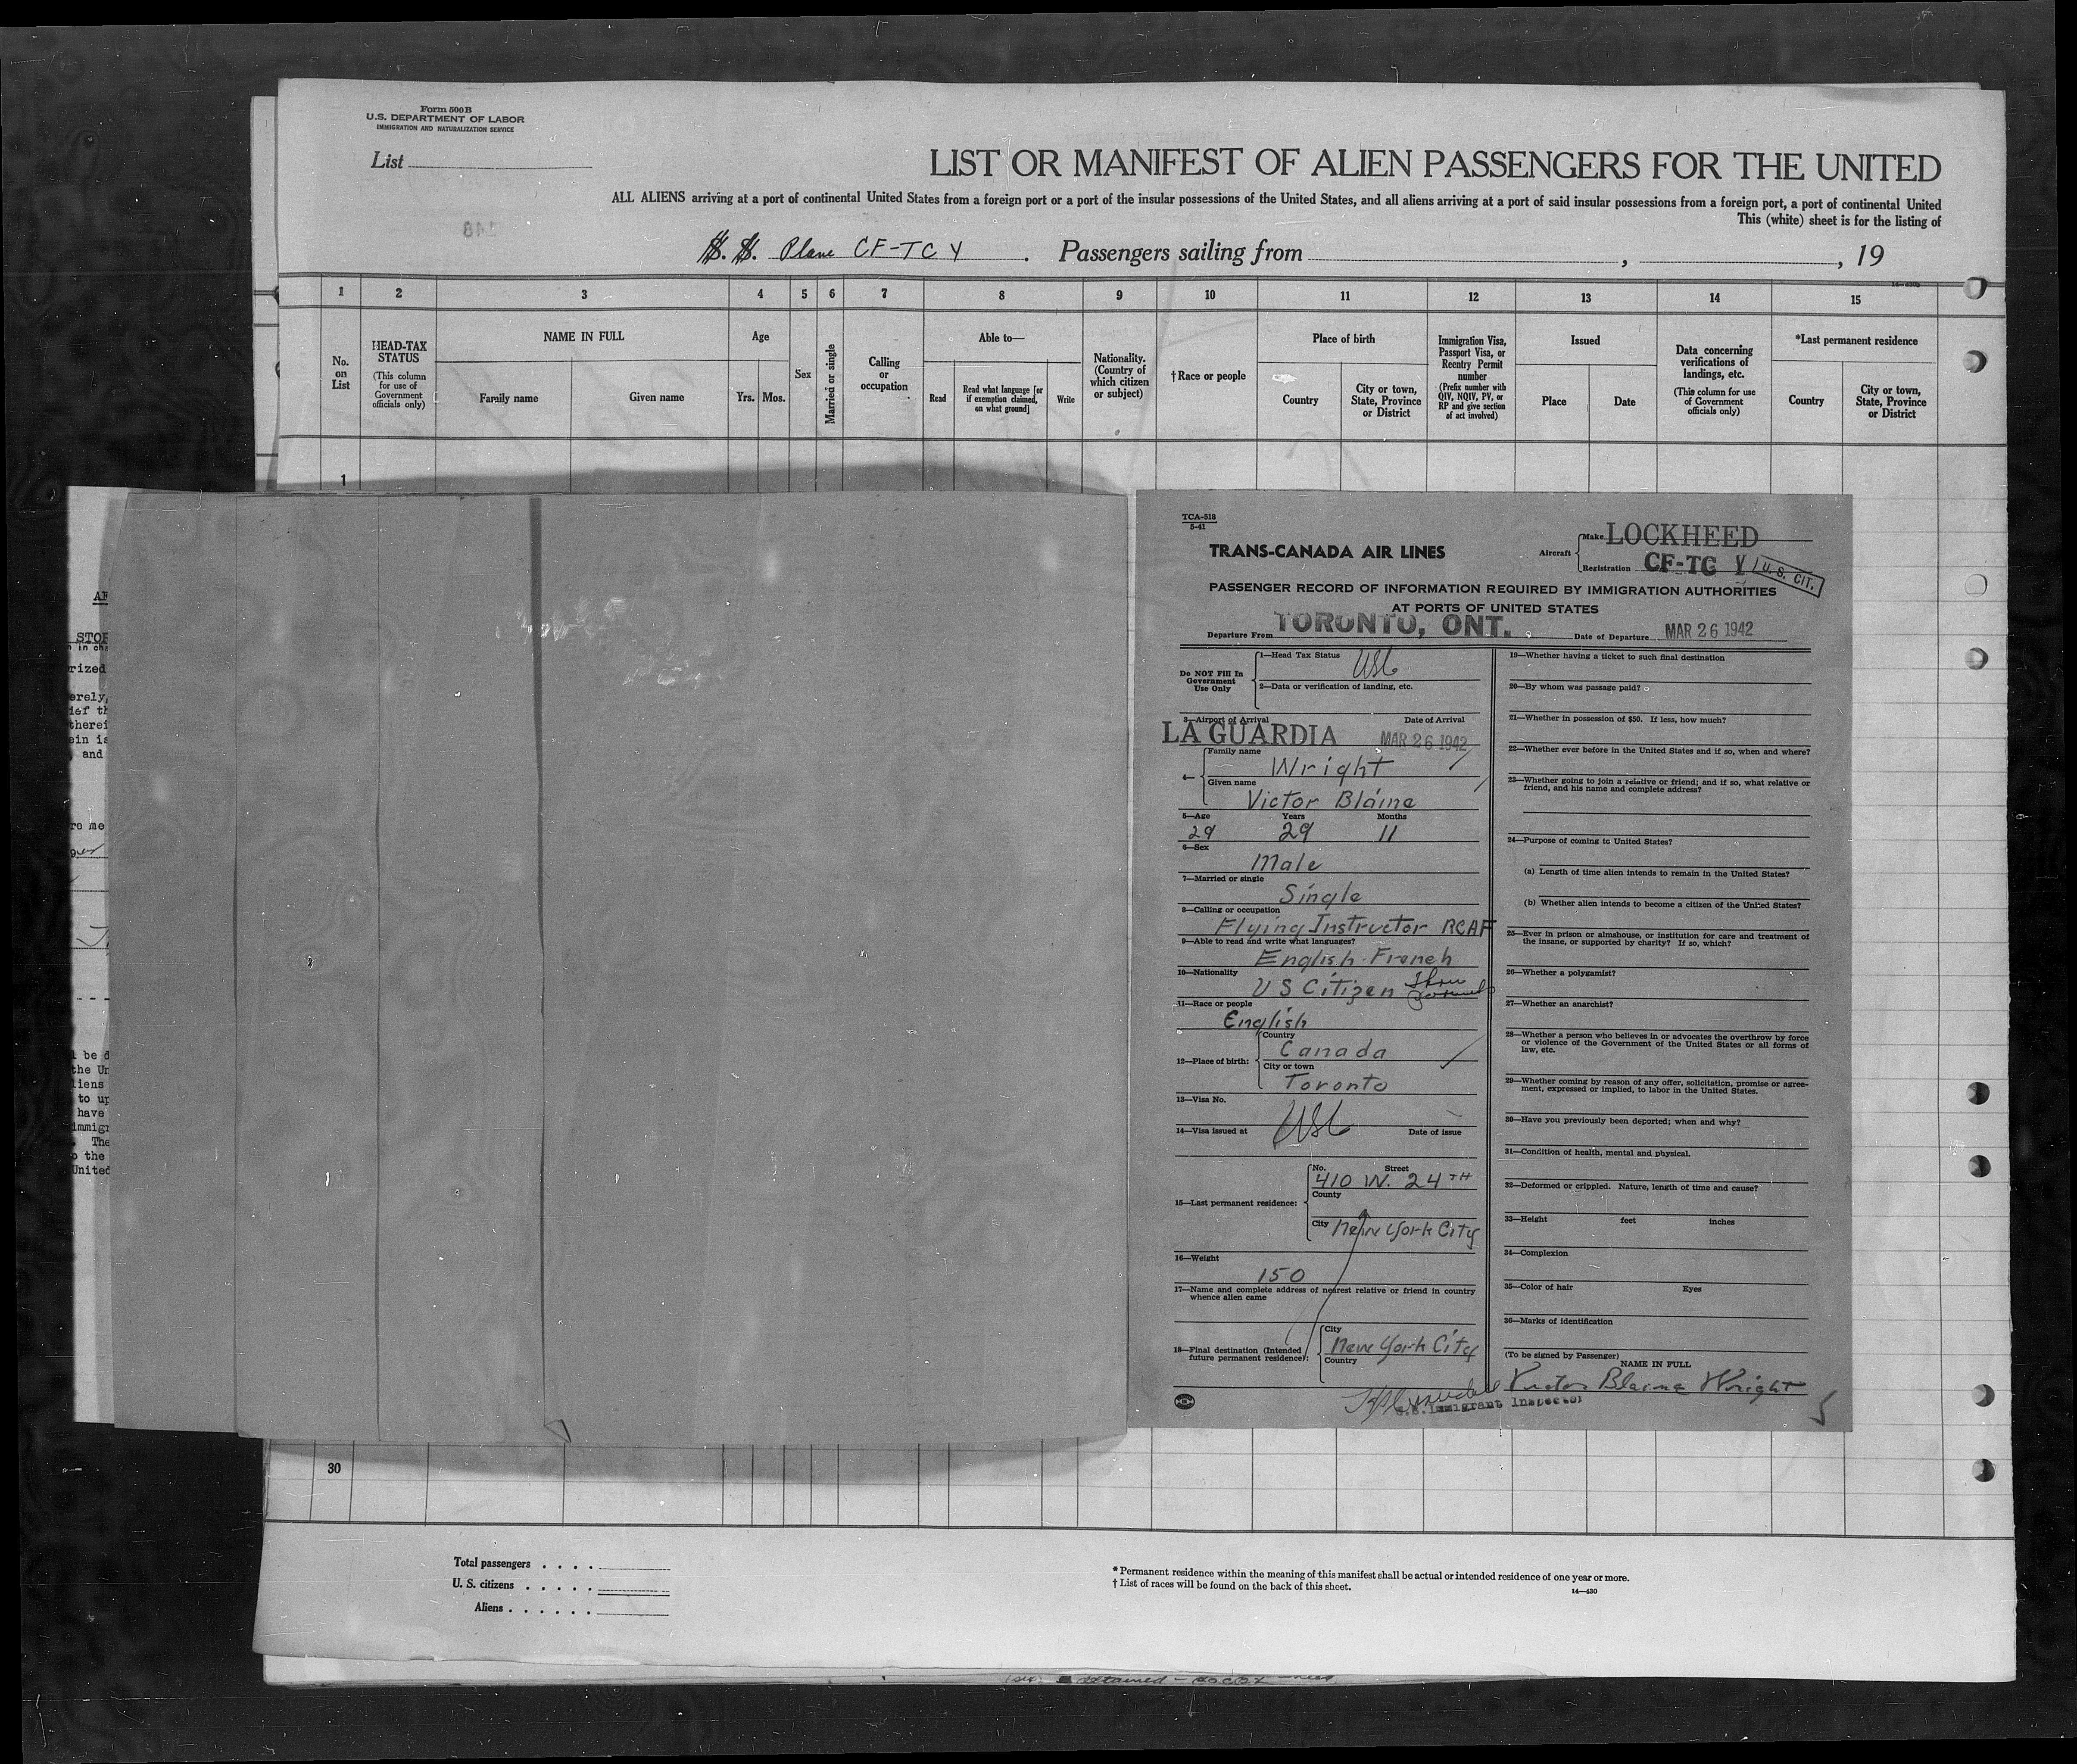 Form 500B
U.S. DEPARTMENT OF LABOR
IMMIGRATION AND NATURALIZATION SERVICE
List
LIST OR MANIFEST OF ALIEN PASSENGERS FOR THE UNITED
ALL ALIENS arriving at a port of continental United States from a foreign port or a port of the insular possessions of the United States, and all aliens arriving at a port of said insular possessions from a foreign port, a port of continental United
This (white) sheet is for the listing of
S. S. Plane CF-TCY. Passengers sailing from , , 19
1 2 3 4 5 6 7 8 9 10 11 12 13 14 15
No. on List
HEAD-TAX STATUS
(This column for use of Government officials only)
NAME IN FULL
Family name Given name
Age
Yrs. Mos.
Sex
Married or single
Calling or occupation
Able to—
Read
Read what language [or if exemption claimed, on what ground]
Write
Nationality. (Country of which citizen or subject)
†Race or people
Place of birth
Country
City or town, State, Province or District
Immigration Visa, Passport Visa, or Reentry Permit number
(Prefix number with QIV, NQIV, PV, or RP and give section of act involved)
Issued
Place Date
Data concerning verifications of landings, etc.
(This column for use of Government officials only)
*Last permanent residence
Country
City or town, State, Province or District
1
STOP
rized
erely,
therei
ein is
and
re me
l be d
the Un
liens
to up
have
immigr
. The
o the
United
TCA-518
5-41
TRANS-CANADA AIR LINES
Aircraft
Make LOCKHEED
Registration CF-TC Y
U. S. CIT.
PASSENGER RECORD OF INFORMATION REQUIRED BY IMMIGRATION AUTHORITIES
AT PORTS OF UNITED STATES
Departure From TORONTO, ONT. Date of Departure MAR 26 1942
Do NOT Fill In Government Use Only
1—Head Tax Status USC
2—Data or verification of landing, etc.
3—Airport of Arrival Date of Arrival
LA GUARDIA MAR 26 1942
4—
Family name
Wright
Given name
Victor Blaine
5—Age Years Months
29 29 11
6—Sex
Male
7—Married or single
Single
8—Calling or occupation
Flying Instructor RCAF
9—Able to read and write what languages?
English-French
10—Nationality
US Citizen
11—Race or people
English
12—Place of birth:
Country
Canada
City or town
Toronto
13—Visa No.
USC
14—Visa issued at Date of issue
15—Last permanent residence:
No. Street
410 W. 24TH
County
City New York City
16—Weight
150
17—Name and complete address of nearest relative or friend in country
whence alien came
18—Final destination (Intended
future permanent residence):
City
New York City
Country
19—Whether having a ticket to such final destination
20—By whom was passage paid?
21—Whether in possession of $50. If less, how much?
22—Whether ever before in the United States and if so, when and where?
23—Whether going to join a relative or friend; and if so, what relative or
friend, and his name and complete address?
24—Purpose of coming to United States?
(a) Length of time alien intends to remain in the United States?
(b) Whether alien intends to become a citizen of the United States?
25—Ever in prison or almshouse, or institution for care and treatment of
the insane, or supported by charity? If so, which?
26—Whether a polygamist?
27—Whether an anarchist?
28—Whether a person who believes in or advocates the overthrow by force
or violence of the Government of the United States or all forms of
law, etc.
29—Whether coming by reason of any offer, solicitation, promise or agree-
ment, expressed or implied, to labor in the United States.
30—Have you previously been deported; when and why?
31—Condition of health, mental and physical.
32—Deformed or crippled. Nature, length of time and cause?
33—Height feet inches
34—Complexion
35—Color of hair Eyes
36—Marks of identification
(To be signed by Passenger)
NAME IN FULL
Victor Blaine Wright
U.S. Immigrant Inspector
5
30
Total passengers . . . .
U. S. citizens . . . . .
Aliens . . . . . .
* Permanent residence within the meaning of this manifest shall be actual or intended residence of one year or more.
† List of races will be found on the back of this sheet.
14—430